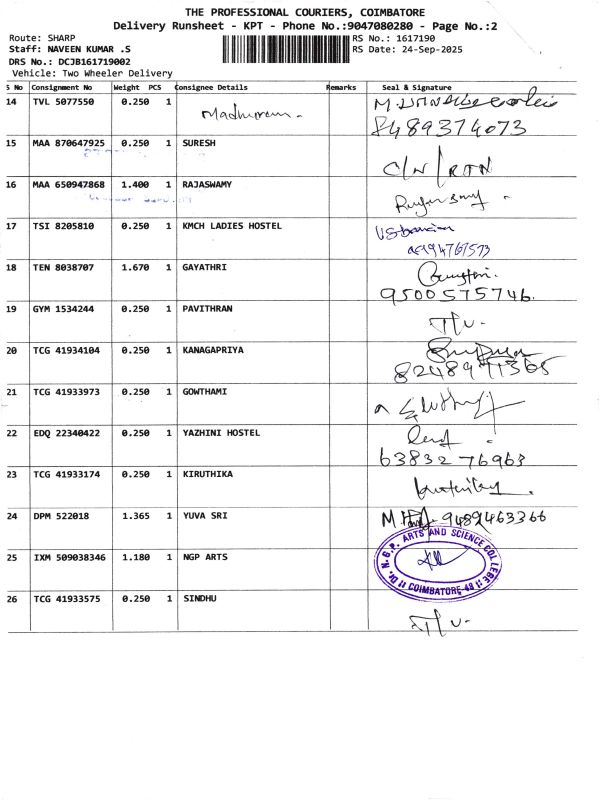 THE PROFESSIONAL COURIERS, COIMBATORE
Delivery Runsheet - KPT - Phone No.:9047080280 - Page No.:2
Route: SHARP RS No.: 1617190
Staff: NAVEEN KUMAR .S RS Date: 24-Sep-2025
DRS No.: DCJB161719002
Vehicle: Two Wheeler Delivery
S No Consignment No Weight PCS Consignee Details Remarks Seal & Signature
14 TVL 5077550 0.250 1 Madhuram.
8489374073
15 MAA 870647925 0.250 1 SURESH C/N/RTN
16 MAA 650947868 1.400 1 RAJASWAMY
17 TSI 8205810 0.250 1 KMCH LADIES HOSTEL
18 TEN 8038707 1.670 1 GAYATHRI
9500575746.
19 GYM 1534244 0.250 1 PAVITHRAN
20 TCG 41934104 0.250 1 KANAGAPRIYA
21 TCG 41933973 0.250 1 GOWTHAMI
22 EDQ 22340422 0.250 1 YAZHINI HOSTEL
63832 76963
23 TCG 41933174 0.250 1 KIRUTHIKA
24 DPM 522018 1.365 1 YUVA SRI 9489463366
25 IXM 509038346 1.180 1 NGP ARTS
Dr. N.G.P. ARTS AND SCIENCE COLLEGE
COIMBATORE-48
26 TCG 41933575 0.250 1 SINDHU